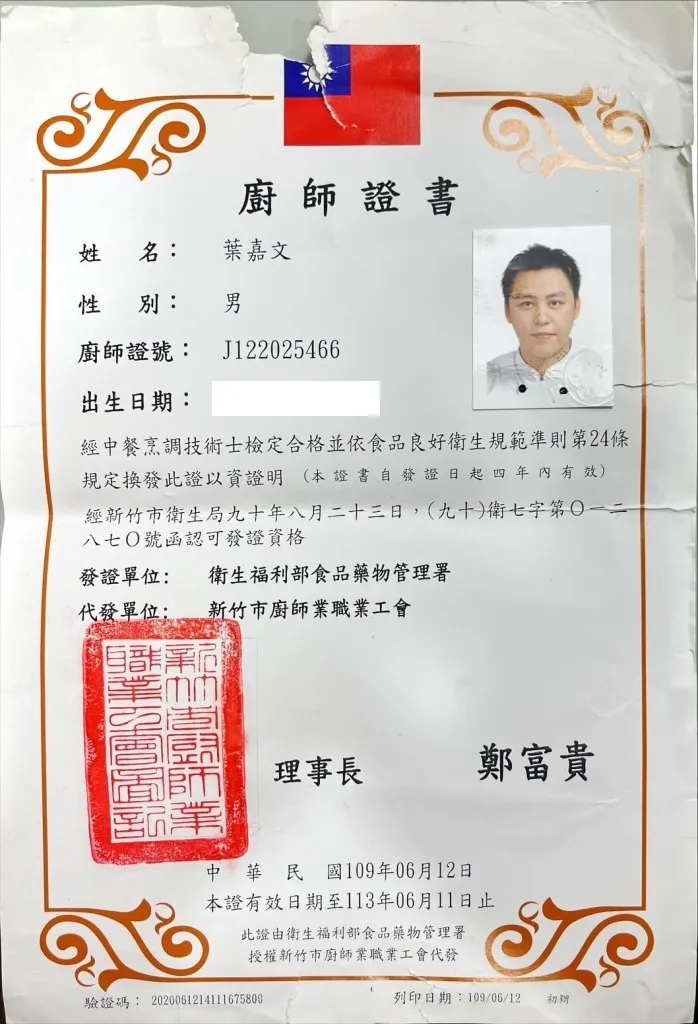 廚師證書
姓 名： 葉嘉文
性 別： 男
廚師證號： J122025466
出生日期：
經中餐烹調技術士檢定合格並依食品良好衛生規範準則第24條
規定換發此證以資證明 （本證書自發證日起四年內有效）
經新竹市衛生局九十年八月二十三日，(九十)衛七字第〇一二
八七〇號函認可發證資格
發證單位： 衛生福利部食品藥物管理署
代發單位： 新竹市廚師業職業工會
新竹市廚師業
職業工會圖記
理事長 鄭富貴
中 華 民 國109年06月12日
本證有效日期至113年06月11日止
此證由衛生福利部食品藥物管理署
授權新竹市廚師業職業工會代發
驗證碼： 2020061214111675800 列印日期：109/06/12 初辦